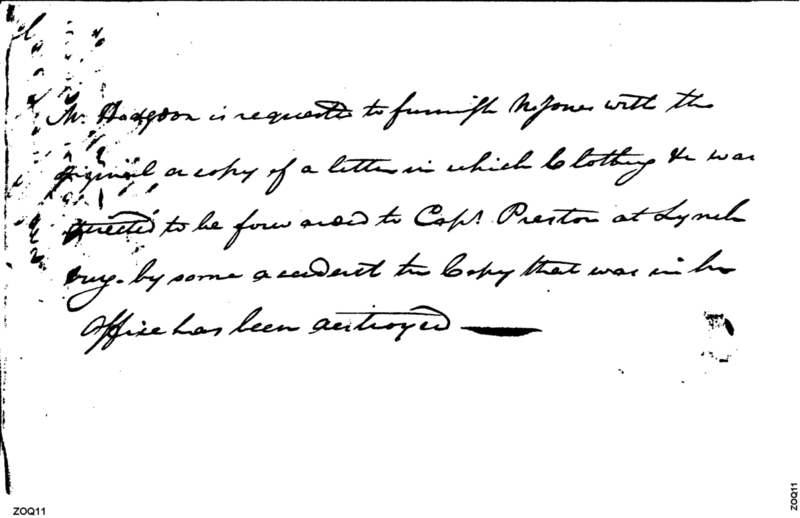 Mr. Hodgdon is requested to furnish Mr Jones with the
original or copy of a letter in which Clothing &c was
directed to be forwarded to Capt. Preston at Lynch
burg. by some accident the Copy that was in his
Office has been destroyed
ZOQ11
ZOQ11